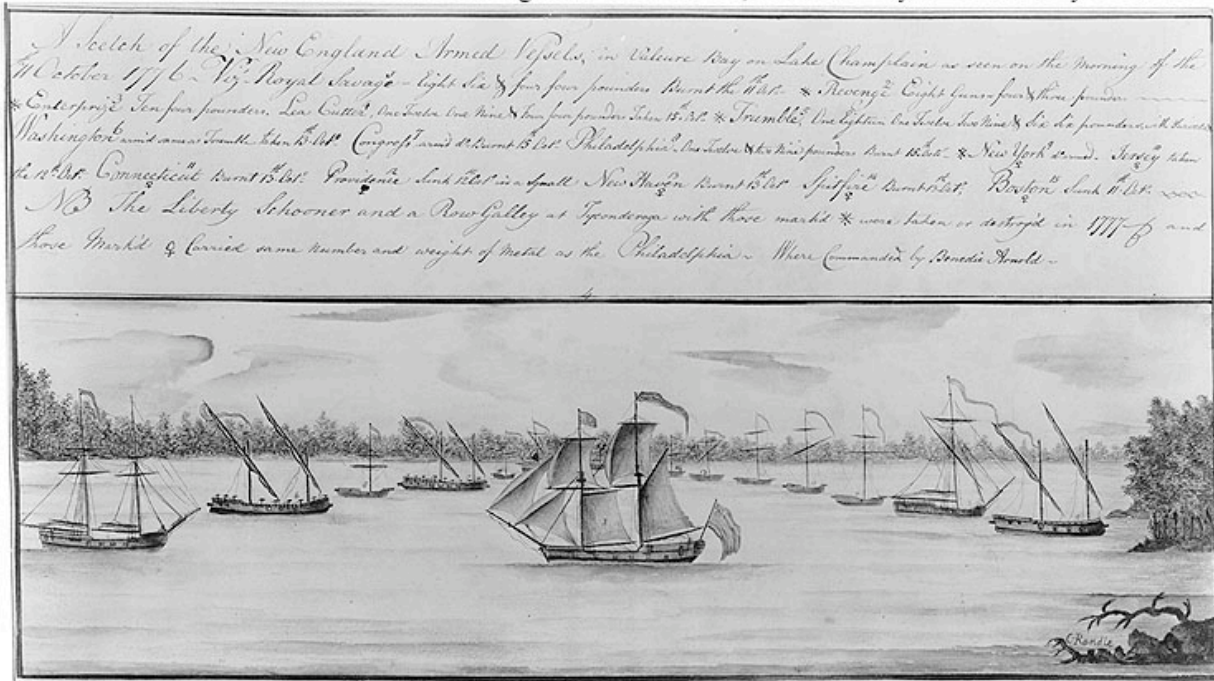 A Scetch of the New England Armed Vessels, in Valcure Bay on Lake Champlain as seen on the morning of the
11 October 1776 – Viz. Royal Savage – Eight Six & four four pounders Burnt the 11th Oct. * Revenge Eight Guns four & three pounders
* Enterprize Ten four pounders. Lea Cutter, One Twelve One Nine & four four pounders Taken 15th Oct. * Trumble, One Eighteen One Twelve Two Nine & Six Six pounders, with
Washington armd same as Trumble taken 13th Oct. Congress armd do. Burnt 15 Oct. Philadelphia One Twelve & two Nine pounders Burnt 15. * New York do armed. Jersey taken
the 12th Oct. Connecticut Burnt 13th Oct. Providence Sunk 12 Oct. in a Small New Haven Burnt 13th Oct. Spitfire Burnt 13th Oct. Boston Sunk 11th Oct.
NB The Liberty Schooner and a Row Galley at Tyconderoga with those markd * were taken or destroy'd in 1777 and
those Mark'd ♀ Carried same number and weight of Metal as the Philadelphia – Where Commanded by Benedic Arnold –
C Randle